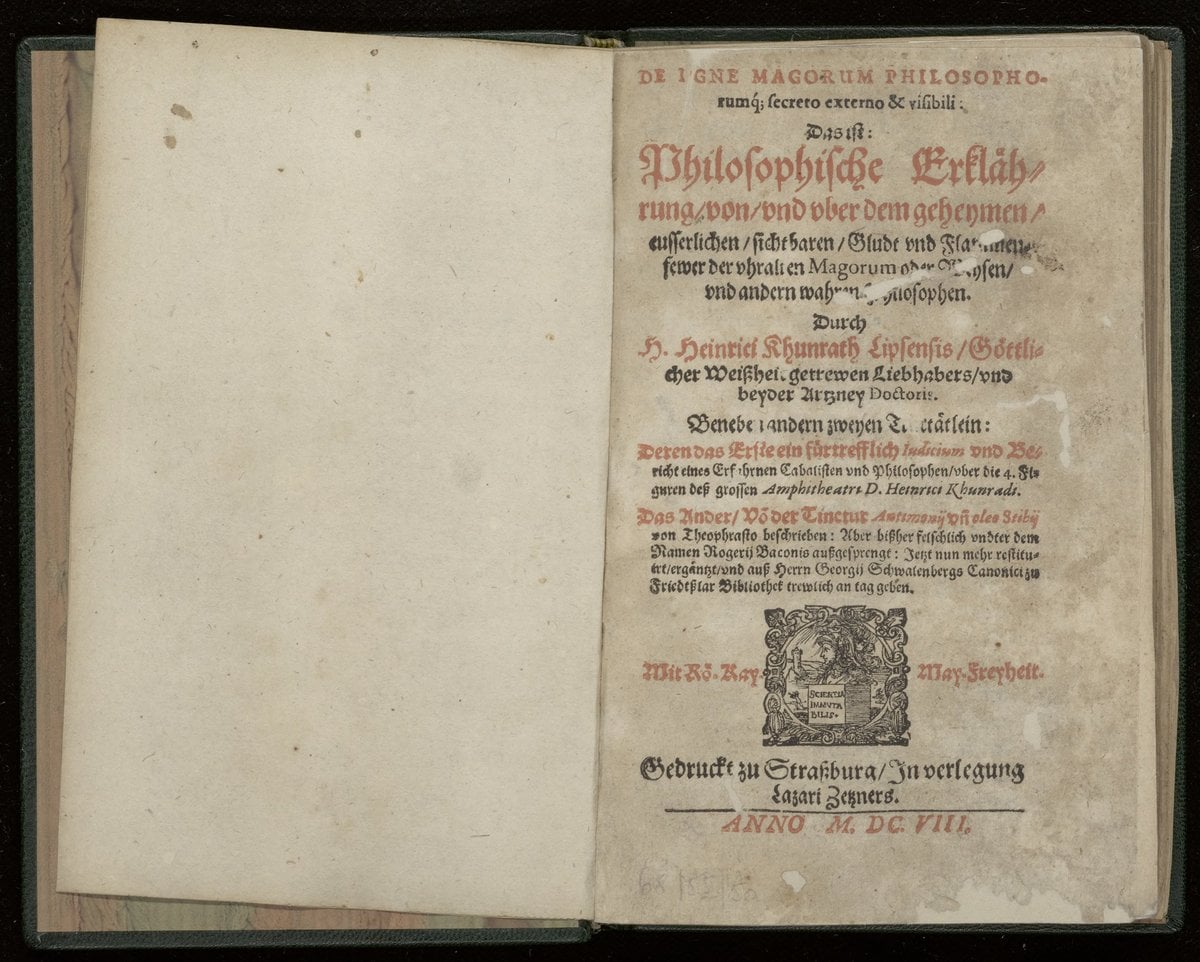 DE IGNE MAGORUM PHILOSOPHO-
rumq́; ſecreto externo & viſibili:
Das iſt:
Philoſophiſche Erkläh⸗
rung/von/vnd vber dem geheymen/
euſſerlichen/ſichtbaren/Gludt vnd
fewer der vhralten Magorum oder
vnd andern wahren Philoſophen.
Durch
H. Heinrici Khunrath Lipſenſis/Göttli⸗
cher Weißheit getrewen Liebhabers/vnd
beyder Artzney Doctoris.
Beneben andern zweyen Tractätlein:
Deren das Erſte ein fürtrefflich Iudicium vnd Be⸗
richt eines Erfahrnen Cabaliſten vnd Philoſophen/vber die 4. Fi⸗
guren deß groſſen Amphitheatri D. Heinrici Khunradi.
Das Ander/Võ der Tinctur Antimonij vñ oleo Stibij
von Theophraſto beſchrieben: Aber bißher felſchlich vndter dem
Namen Rogerij Baconis außgeſprengt: Jetzt nun mehr reſtitu⸗
irt/ergäntzt/vnd auß Herrn Georgij Schwalenbergs Canonici zu
Friedtßlar Bibliothek trewlich an tag geben.
Mit Rö. Kay. May. Freyheit.
SCIENTIA
IMMUTA
BILIS.
Gedruckt zu Straßburg/In verlegung
Lazari Zetzners.
ANNO M. DC. VIII.